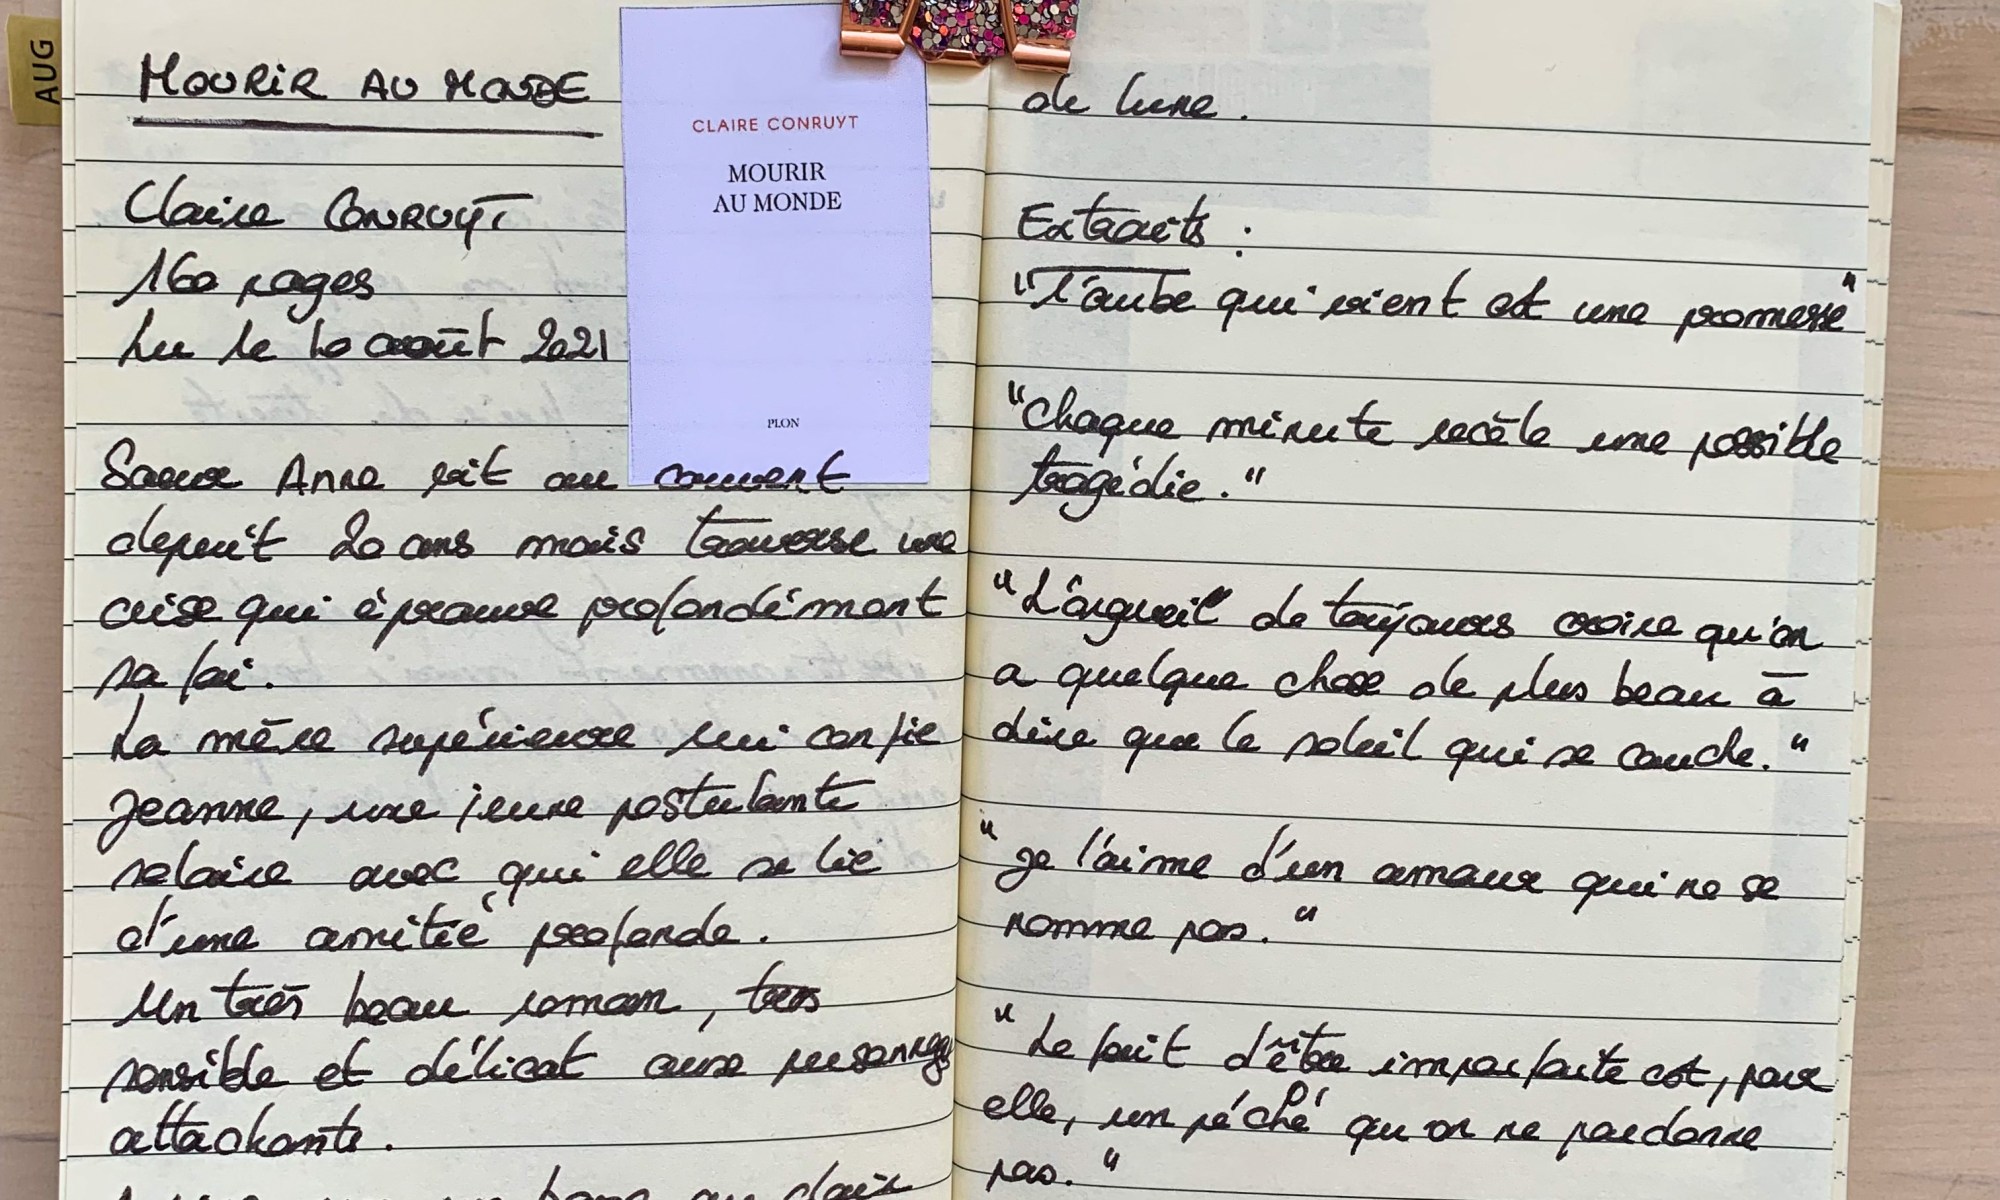 AUG
MOURIR AU MONDE
Claire CONRUYT
160 pages
Lu le 10 août 2021
CLAIRE CONRUYT
MOURIR
AU MONDE
PLON
Soeur Anne vit au couvent
depuis 20 ans mais traverse une
crise qui éprouve profondément
sa foi.
La mère supérieure lui confie
Jeanne, une jeune postulante
solaire avec qui elle se lie
d'une amitié profonde.
Un très beau roman, très
sensible et délicat aux personnages
attachants.
banc au clair
de lune.
Extraits :
"L'aube qui vient est une promesse"
"Chaque minute recèle une possible
tragédie."
"L'orgueil de toujours croire qu'on
a quelque chose de plus beau à
dire que le soleil qui se couche."
"Je l'aime d'un amour qui ne se
nomme pas."
"Le fait d'être imparfaite est, pour
elle, un péché qu'on ne pardonne
pas."